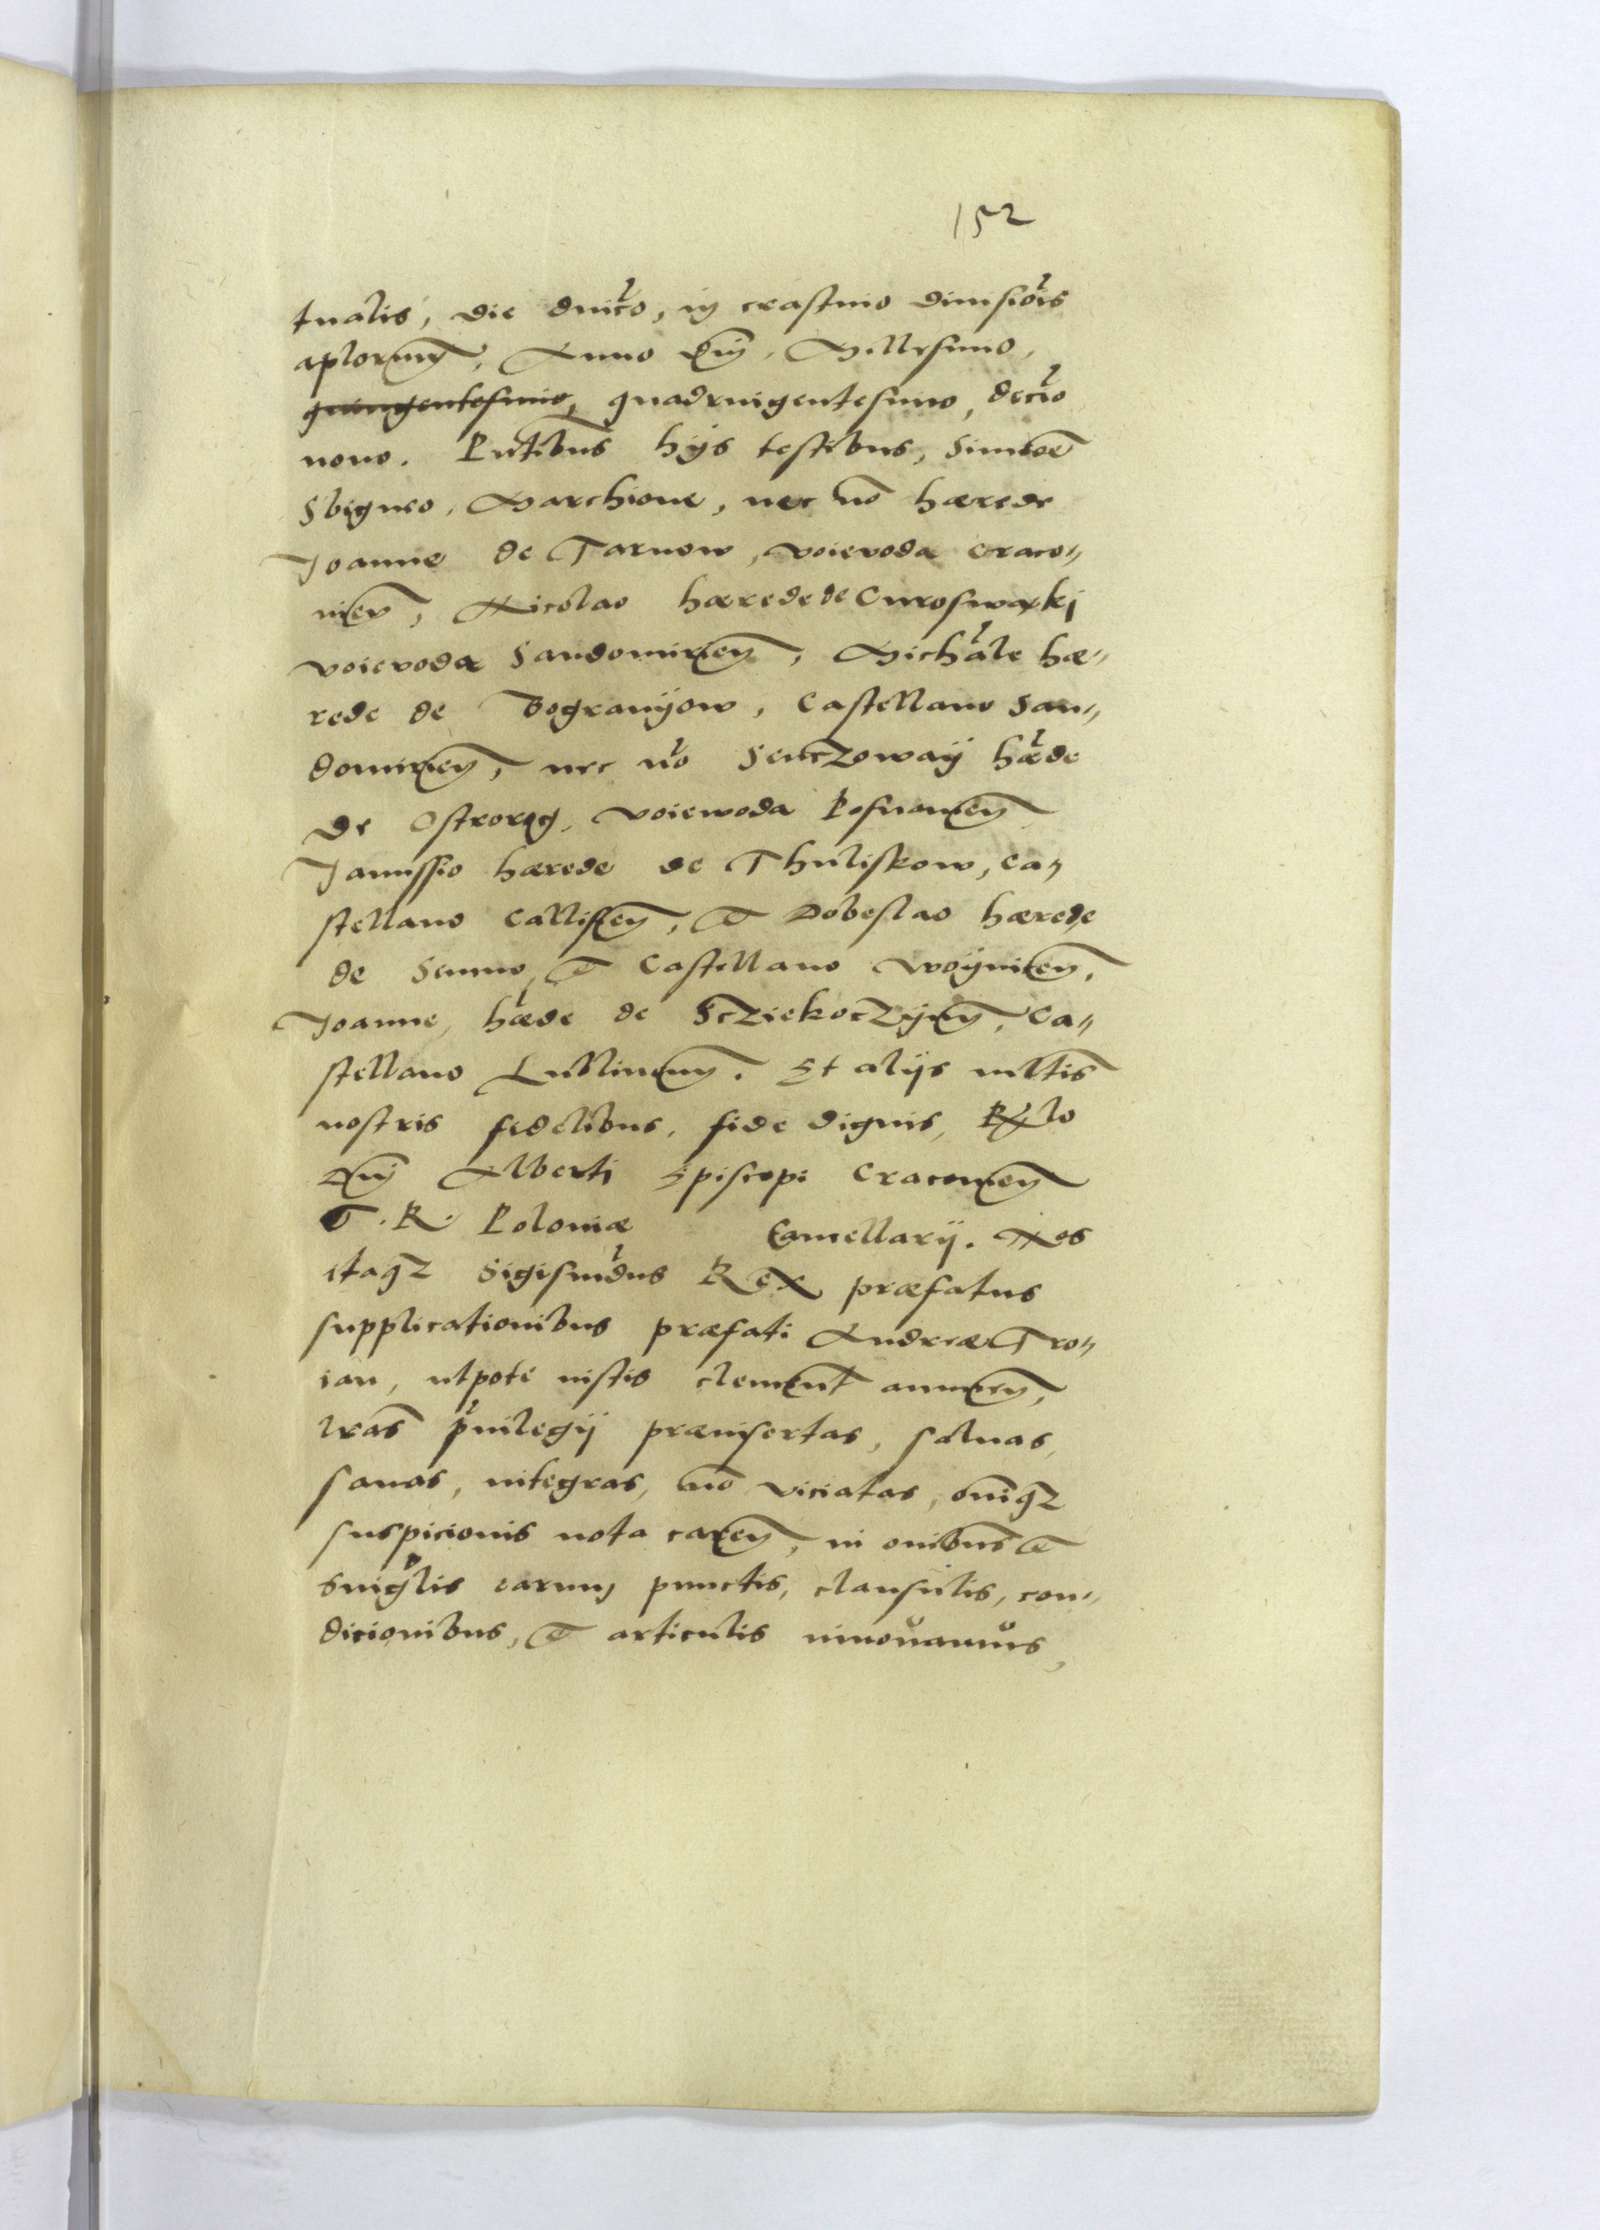 152
tualis, die dnico, in crastino diuisiois
aplorum, Anno Dni, Millesimo,
quingentesimo, quadringentesimo, decio
nono. Pntibus hijs testibus, Simoe
Sbigneo, Marchione, nec no hærede
Joanne de Tarnow, voievoda Craco„
nien, Nicolao hærede de Curoswaski
voievoda Sandomirien, Michale hæ„
rede de Bogranijow, Castellano San„
domirien, nec no Senczoway hæde
de Ostrorog, voiewoda Posnanien
Janussio hærede de Thuliskow, Ca„
stellano Callisen, et Dobeslao hærede
de Senno, et Castellano Woynicen,
Joanne, hæde de Scziekoczijn, Ca„
stellano Lublinen. Et alijs multis
nostris fidelibus, fide dignis,
Dni Alberti Episcopi Cracouien
et. R. Poloniæ Cancellarij. Nos
itaqz Sigismudus Rex præfatus
supplicationibus præfati Andreæ Tro„
ian, utpote iustis clement annuen,
lras priuilegij præinsertas, saluas,
sanas, integras, no viciatas, omiqz
suspicionis nota caren, in onibus et
singulis earum punctis, clausulis, con„
dicionibus, et articulis innouamus,